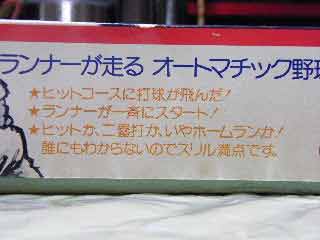 ランナーが走る オートマチック野球
★ヒットコースに打球が飛んだ!
★ランナーが一斉にスタート!
★ヒットか、二塁打か、いやホームランか!
誰にもわからないのでスリル満点です。